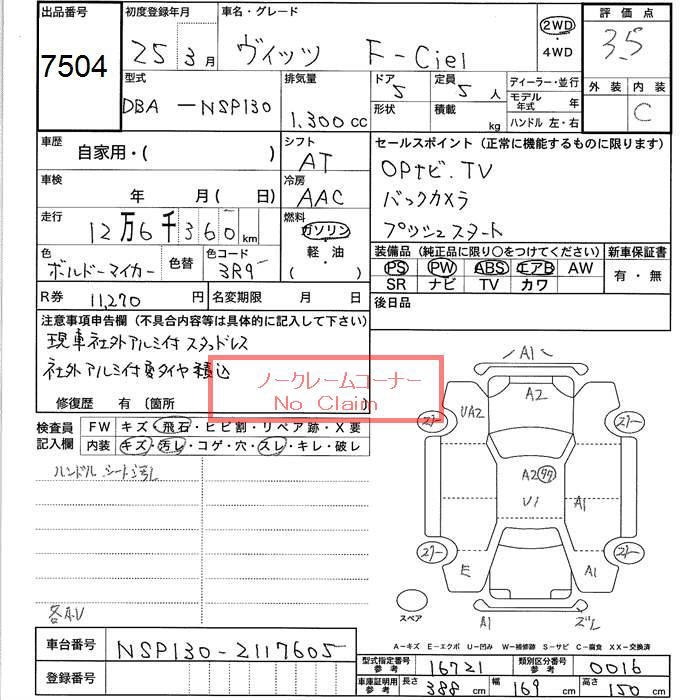 出品番号
7504
初度登録年月
25 3月
車名・グレード
ヴィッツ F-Ciel
2WD
・
4WD
評価点
3.5
外装 内装
C
型式
DBA-NSP130
排気量
1.300cc
ドア
5
定員
5人
形状
積載
kg
ディーラー・並行
モデル年式 年
ハンドル 左・右
車歴
自家用・( )
シフト
AT
車検
年 月( 日)
冷房
AAC
走行
12万6千360km
燃料
ガソリン
軽・油
( )
色
ボルドーマイカー
色替
色コード
3R9
R券 11,270円
名変期限 月 日
セールスポイント(正常に機能するものに限ります)
OPナビ.TV
バックカメラ
プッシュスタート
装備品(純正品に限り○をつけてください)
PS PW ABS エアB AW
SR ナビ TV カワ
新車保証書
有・無
後日品
注意事項申告欄(不具合内容等は具体的に記入して下さい)
現車社外アルミ付スタッドレス
社外アルミ付夏タイヤ積込
修復歴 有〔箇所
ノークレームコーナー
No Claim
検査員記入欄
FW キズ・飛石・ヒビ割・リペア跡・X要
内装 キズ・汚レ・コゲ・穴・スレ・キレ・破レ
ハンドル シート汚レ
各A.U
A1
A2
UA2
A2
U1
A1
E
A1
A1
ズレ
スペア
A-キズ E-エクボ U-凹み W-補修跡 S-サビ C-腐食 XX-交換済
車台番号
NSP130-2117605
登録番号
型式指定番号参考
16721
類別区分番号参考
0016
車庫証明用参考
長さ 388cm
幅 169cm
高さ 150cm